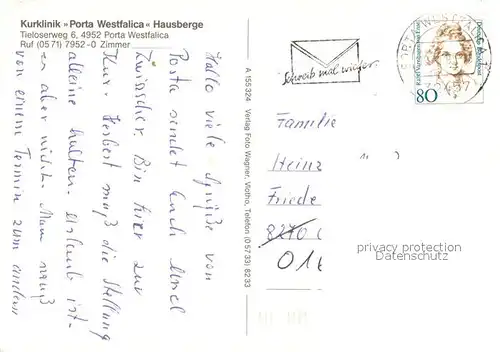 Kurklinik »Porta Westfalica« Hausberge
Tieloserweg 6, 4952 Porta Westfalica
Ruf (0571) 7952-0 Zimmer
Hallo viele Grüße von
Porta sendet Euch
Zwischen. Bin hier zur
Kur. Herbert muß die Stellung
alleine halten. Urlaub ist
es aber nicht. Man muß
von einem Termin zum andern
A 155324 Verlag Foto Wagner, Vlotho, Telefon (05733) 8233
Schreib mal wieder
Deutsche Bundespost
80
Familie
Heinz
Friede
8270
016
privacy protection
Datenschutz